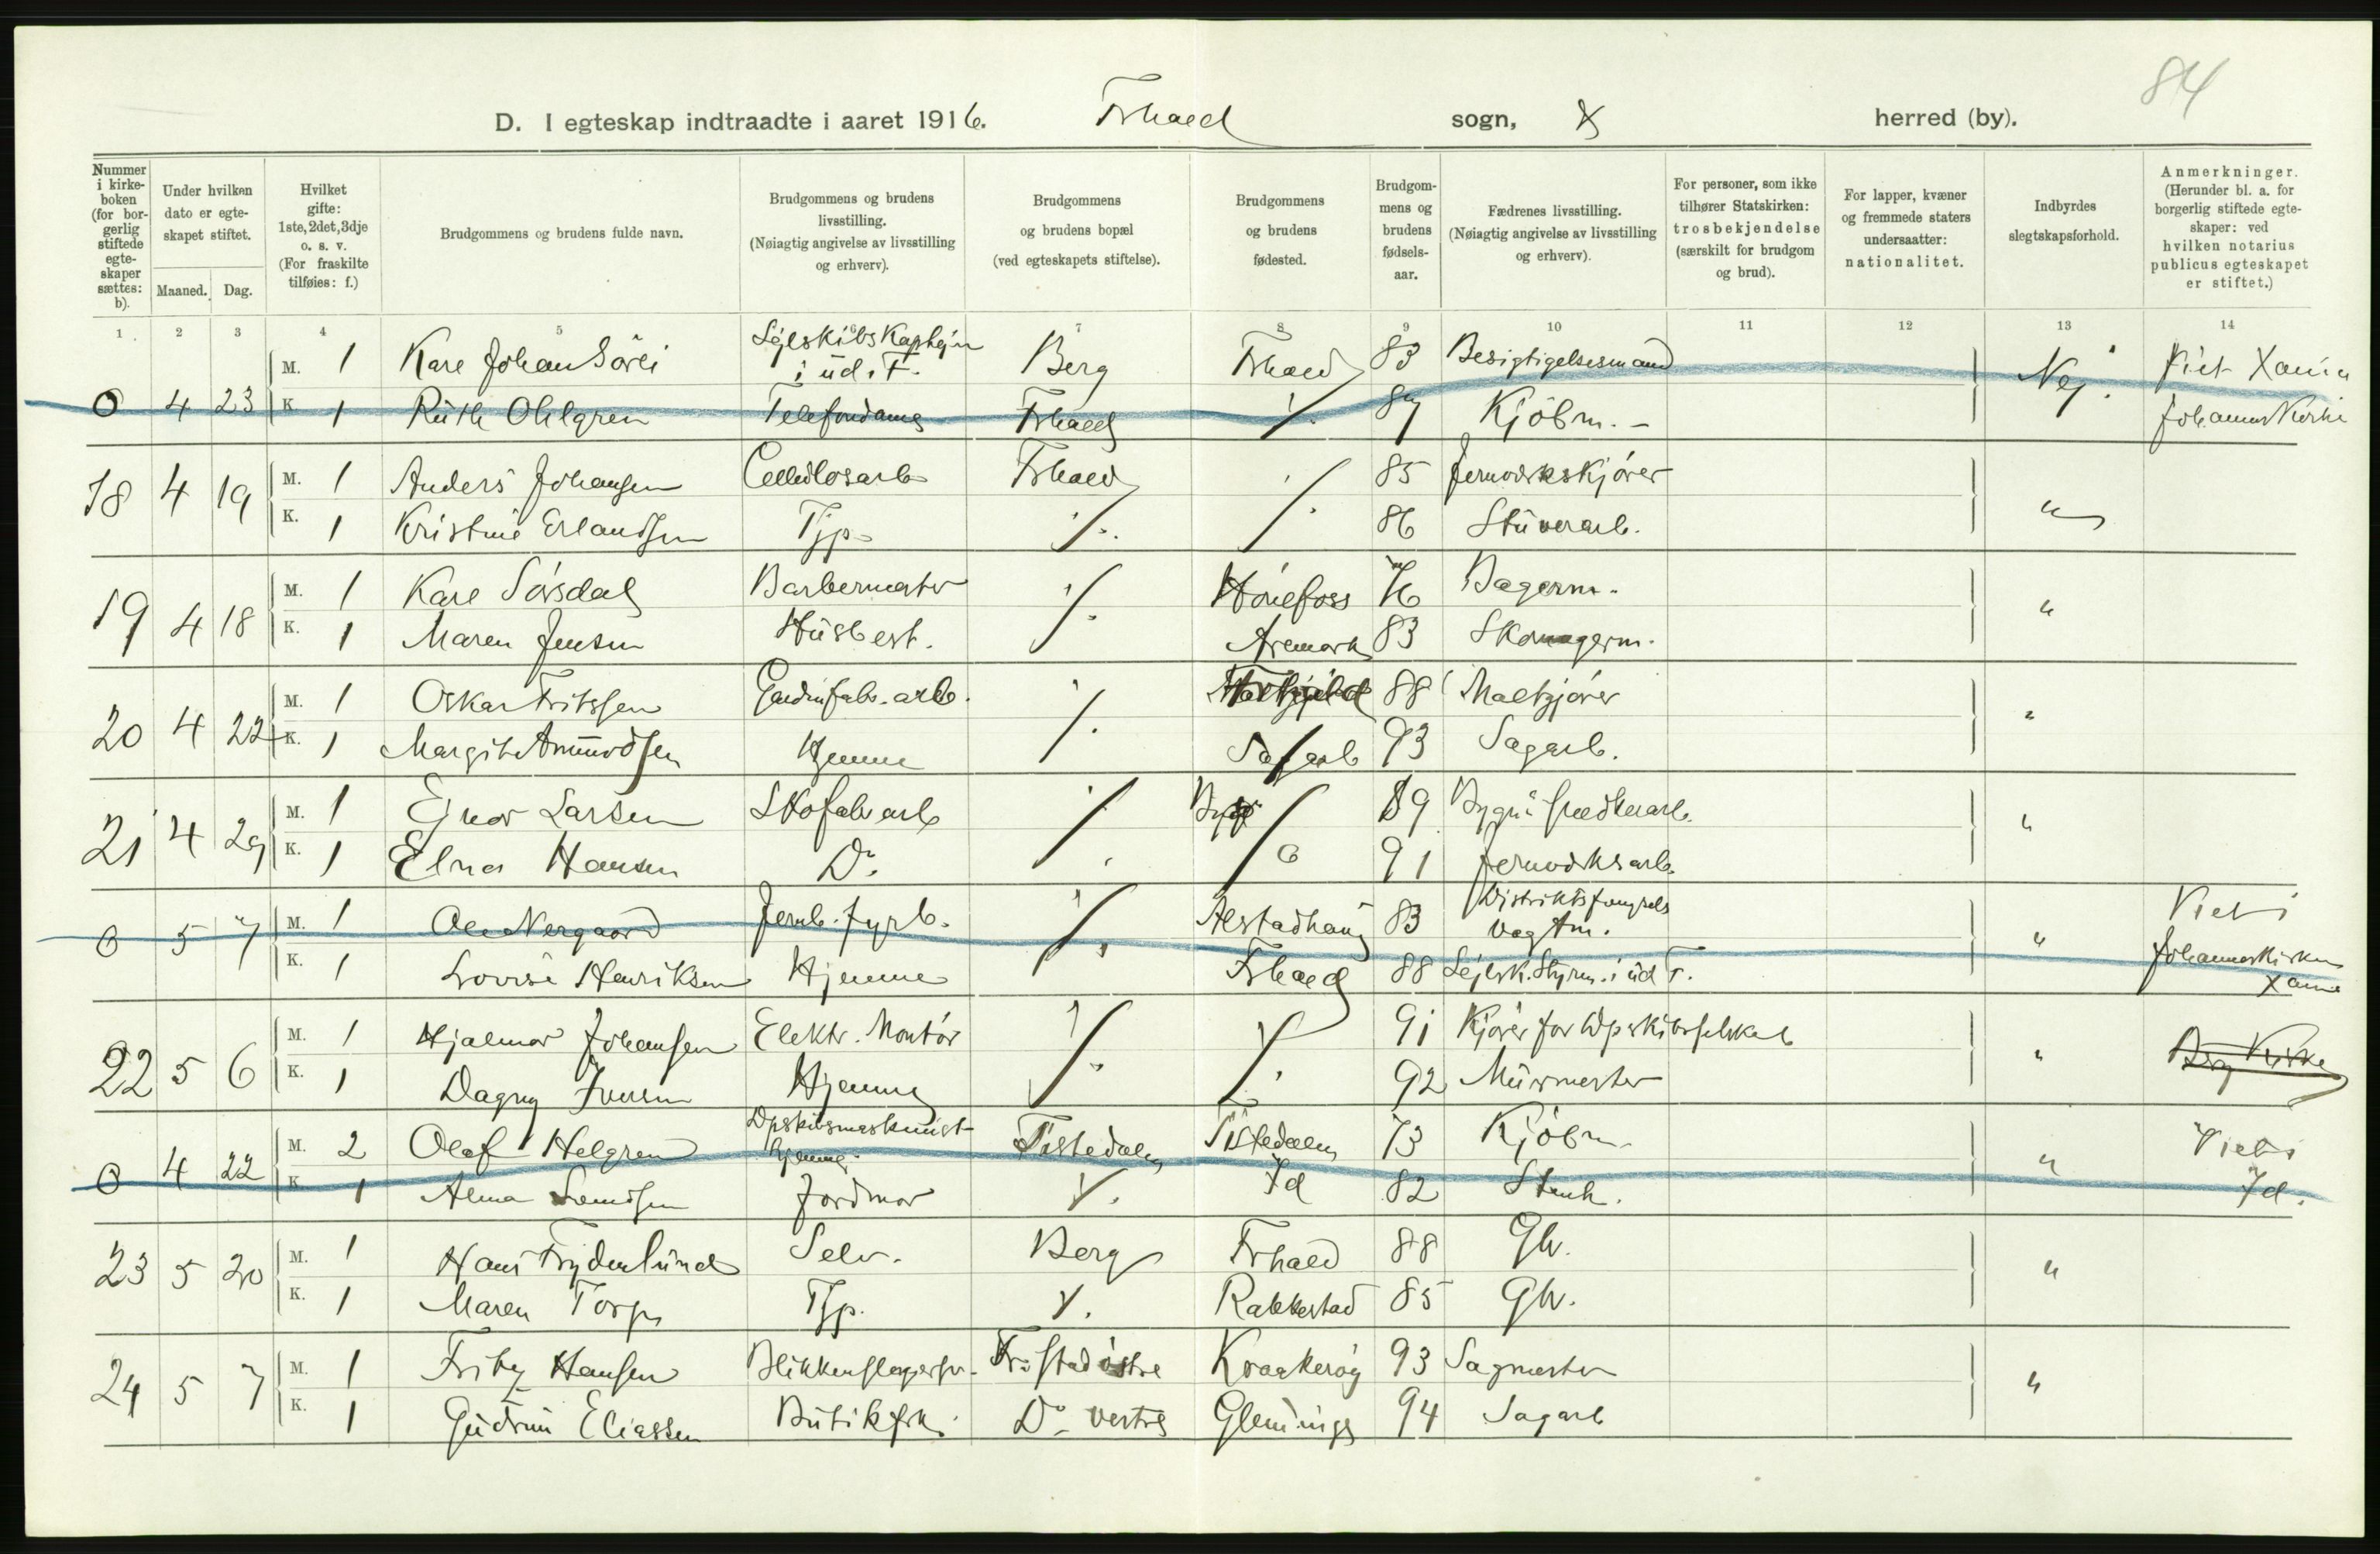 84
D. I egteskap indtraadte i aaret 1916. Frhald sogn, herred (by).
Nummer i kirkeboken (for borgerlig stiftede egteskaper sættes: b).
Under hvilken dato er egteskapet stiftet.
Maaned. Dag.
Hvilket gifte: 1ste, 2det, 3dje o. s. v. (For fraskilte tilføies: f.)
Brudgommens og brudens fulde navn.
Brudgommens og brudens livsstilling. (Nøiagtig angivelse av livsstilling og erhverv).
Brudgommens og brudens bopæl (ved egteskapets stiftelse).
Brudgommens og brudens fødested.
Brudgommens og brudens fødselsaar.
Fædrenes livsstilling. (Nøiagtig angivelse av livsstilling og erhverv).
For personer, som ikke tilhører Statskirken: trosbekjendelse (særskilt for brudgom og brud).
For lapper, kvæner og fremmede staters undersaatter: nationalitet.
Indbyrdes slegtskapsforhold.
Anmerkninger. (Herunder bl. a. for borgerlig stiftede egteskaper: ved hvilken notarius publicus egteskapet er stiftet.)
1 2 3 4 5 6 7 8 9 10 11 12 13 14
M. 1 Karl Johan Sejlskibskaptejn i ud. F. Berg Frhald 83 Besigtigelsesmand Nej. Viet Xania
0 4 23 K. 1 Ruth Ohlgren Telefondame Frhald 87 Kjöbm. Johannes Kirke
18 4 19 M. 1 Anders Johansen Cellulosarb Frhald 85 Jernverkskjörer "
K. 1 Kristine Erlandsen Tjp 86 Stuverarb.
19 4 18 M. 1 Karl Sörsdal Barbermester Hönefoss 76 Bagerm. "
K. 1 Maren Jensen Husbest. Aremark 83 Skomagerm.
20 4 22 M. 1 Oskar Fritssen Gardinfabr. arb. 88 Maltgjörer "
K. 1 Margit Amundsen Hjemme 93 Sagarb.
21 4 29 M. 1 Ejnar Larsen Skofabr arb 89 "
K. 1 Elna Hansen Do. 91 Jernverksarb.
0 5 7 M. 1 Ole Nergaard Jernb. fyrb. Alstadhaug 83 Distriktsfængsels Vagtm. " Viet i
K. 1 Lovise Henriksen Hjemme Frhald 88 Sejlsk. Styrm. i ud F. Johanneskirken Xania
22 5 6 M. 1 Hjalmar Johansen Elektr. Montör 91 Kjörer for Dpskibsselskab " Berg Kirke
K. 1 Dagny Iversen Hjemme 92 Murmester
0 4 22 M. 2 Olaf Helgren Dpskibsmaskinist Tistedalen Tistedalen 73 Kjöbm. " Viet i
Hjemme
K. 1 Alma Jordmor Id 82 Id.
23 5 20 M. 1 Hans Frydenlund Selv. Berg Frhald 88 Gbr. "
K. 1 Maren Torp Tjp. Rakkestad 85 Gbr.
24 5 7 M. 1 Fritz Hansen Blikkenslagersv. Fr.stad östre Kraakeröy 93 Sagmester "
K. 1 Gudrun Eliassen Butikfrk. Do vestre Glemminge 94 Sagarb